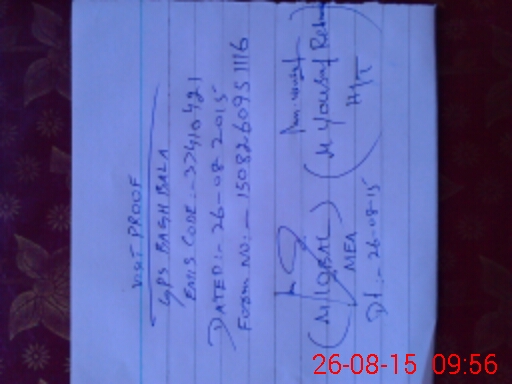 VISIT PROOF
GPS BAGH BALA
EMIS CODE:- 37410421
DATED:- 26-08-2015
FORM NO:- 1508260951116
(M IQBAL)
MEA
Dt:- 26-08-15
(M Yousaf Rehm
H/T
26-08-15 09:56